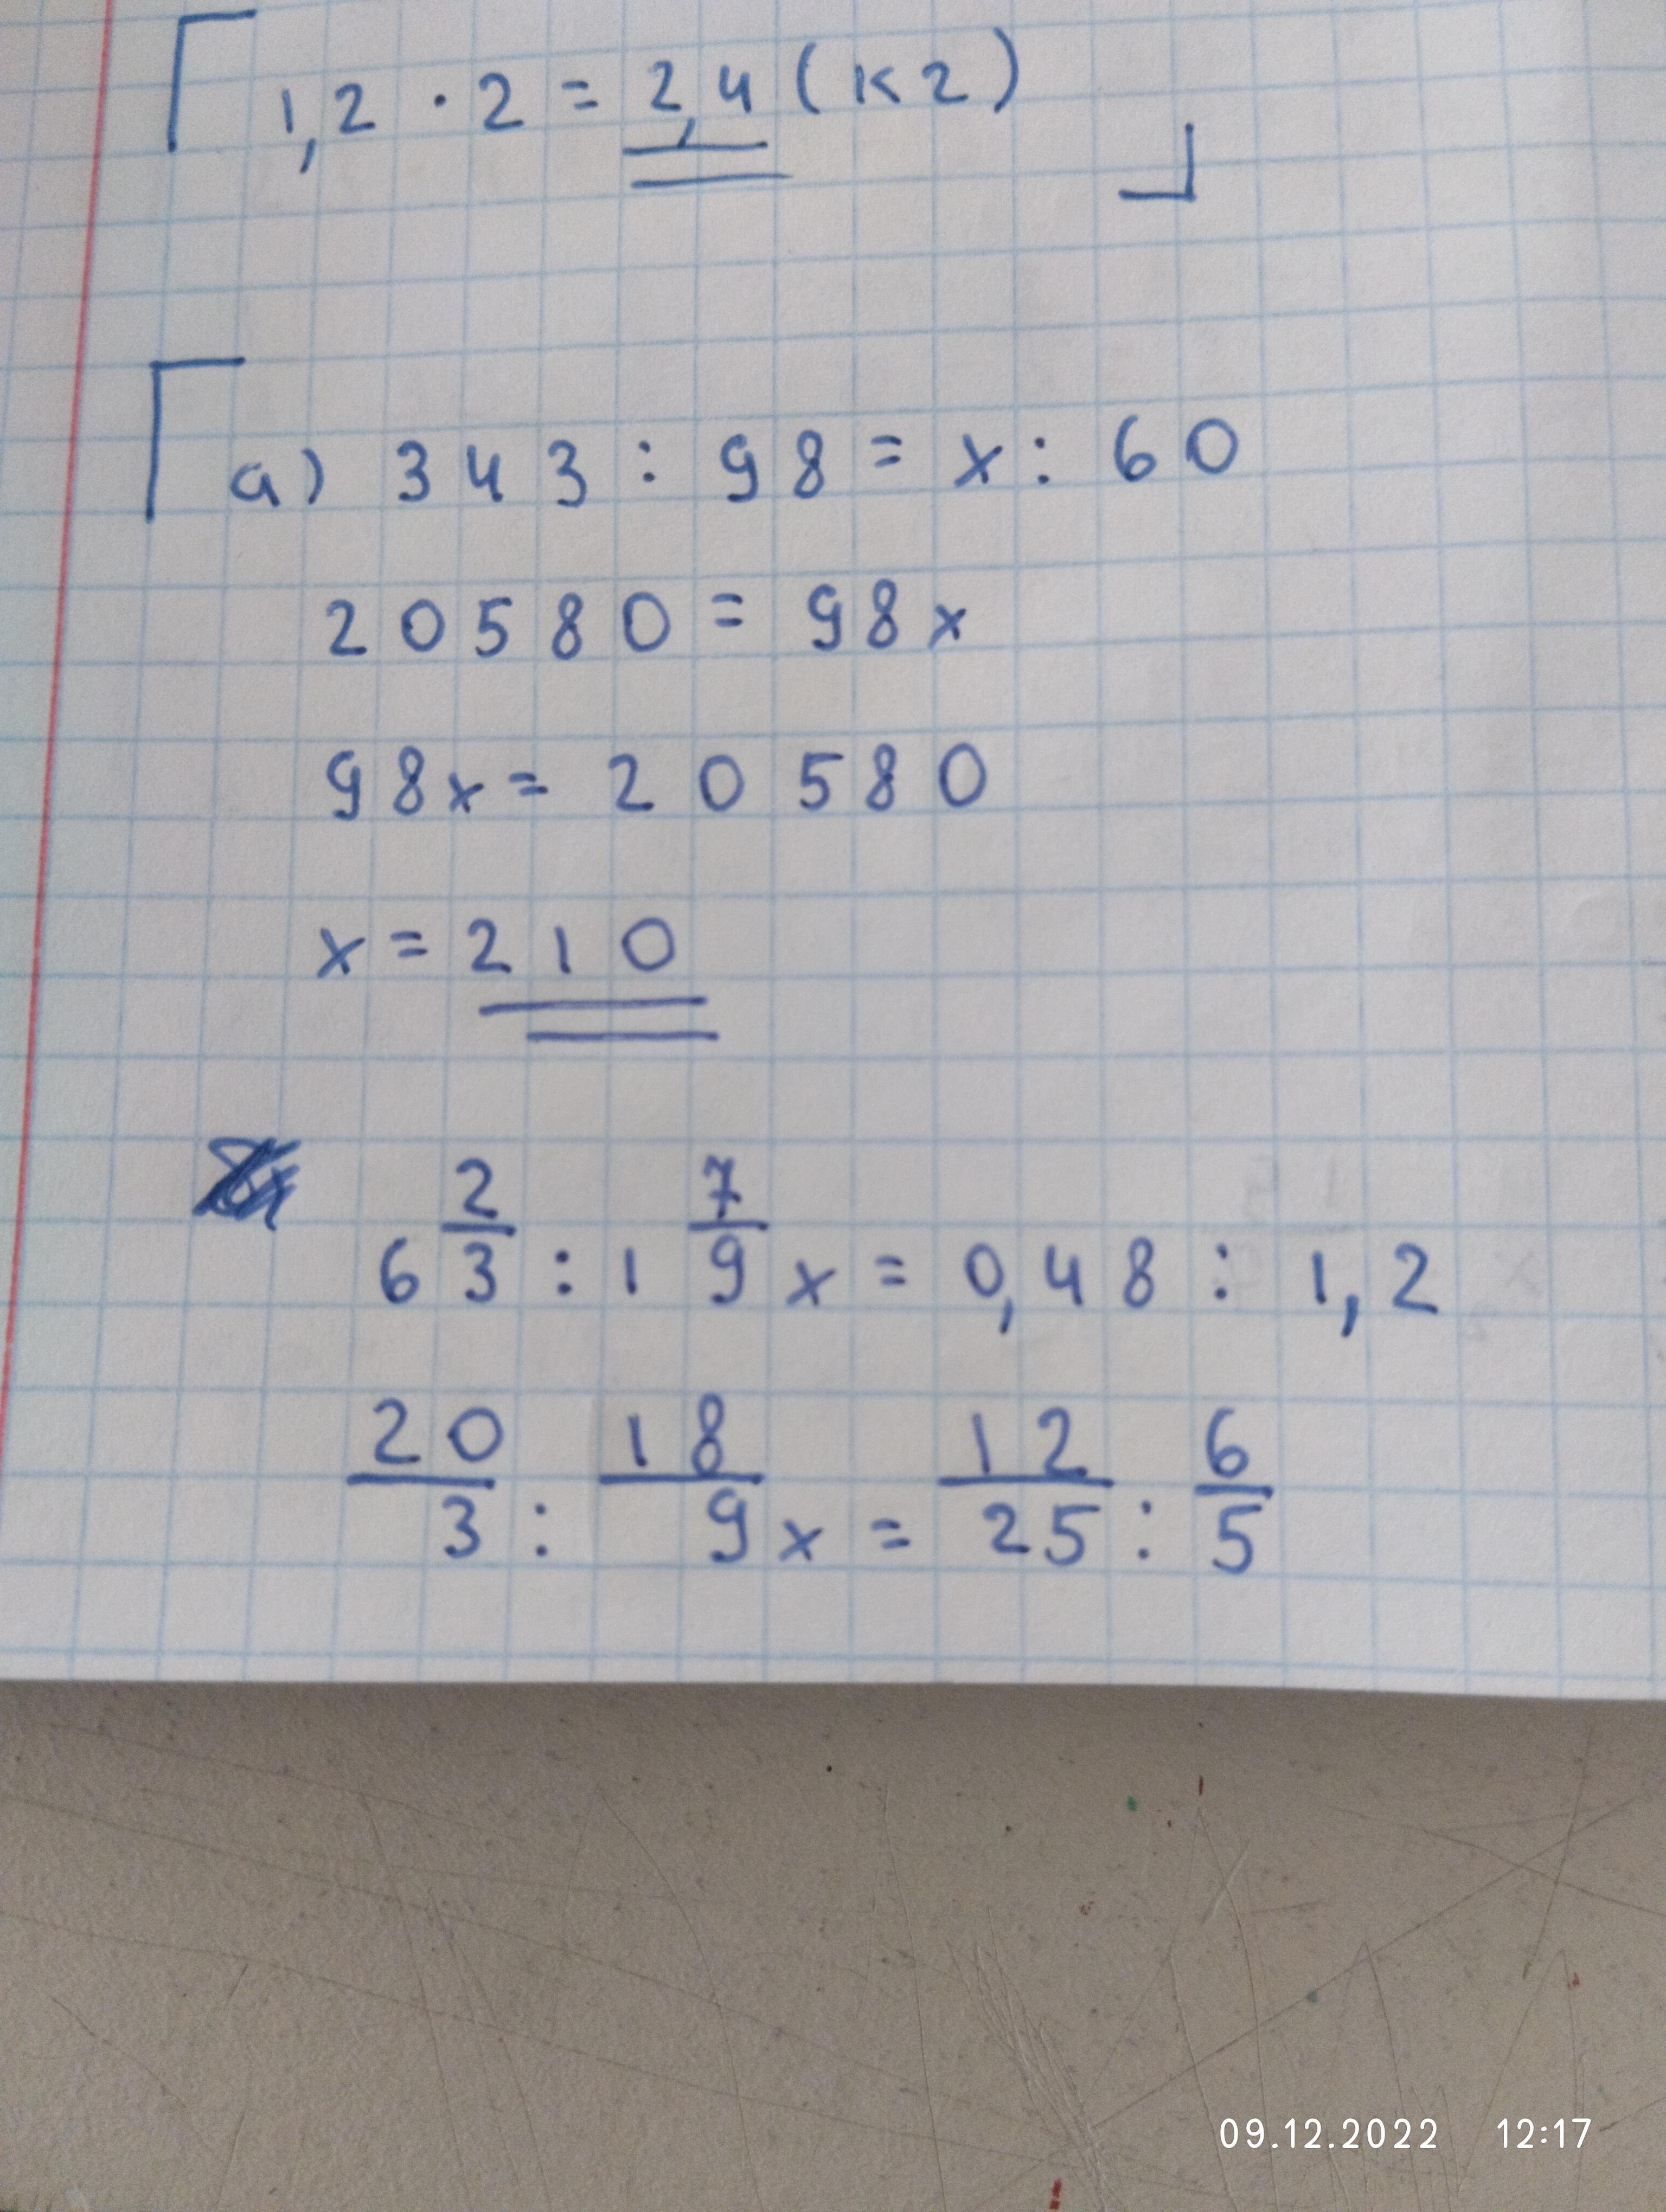 1,2 · 2 = 2,4 (кг)
а) 343 : 98 = x : 60
20580 = 98x
98x = 20580
x = 210
6 2/3 : 1 7/9 x = 0,48 : 1,2
20/3 : 18/9 x = 12/25 : 6/5
09.12.2022 12:17